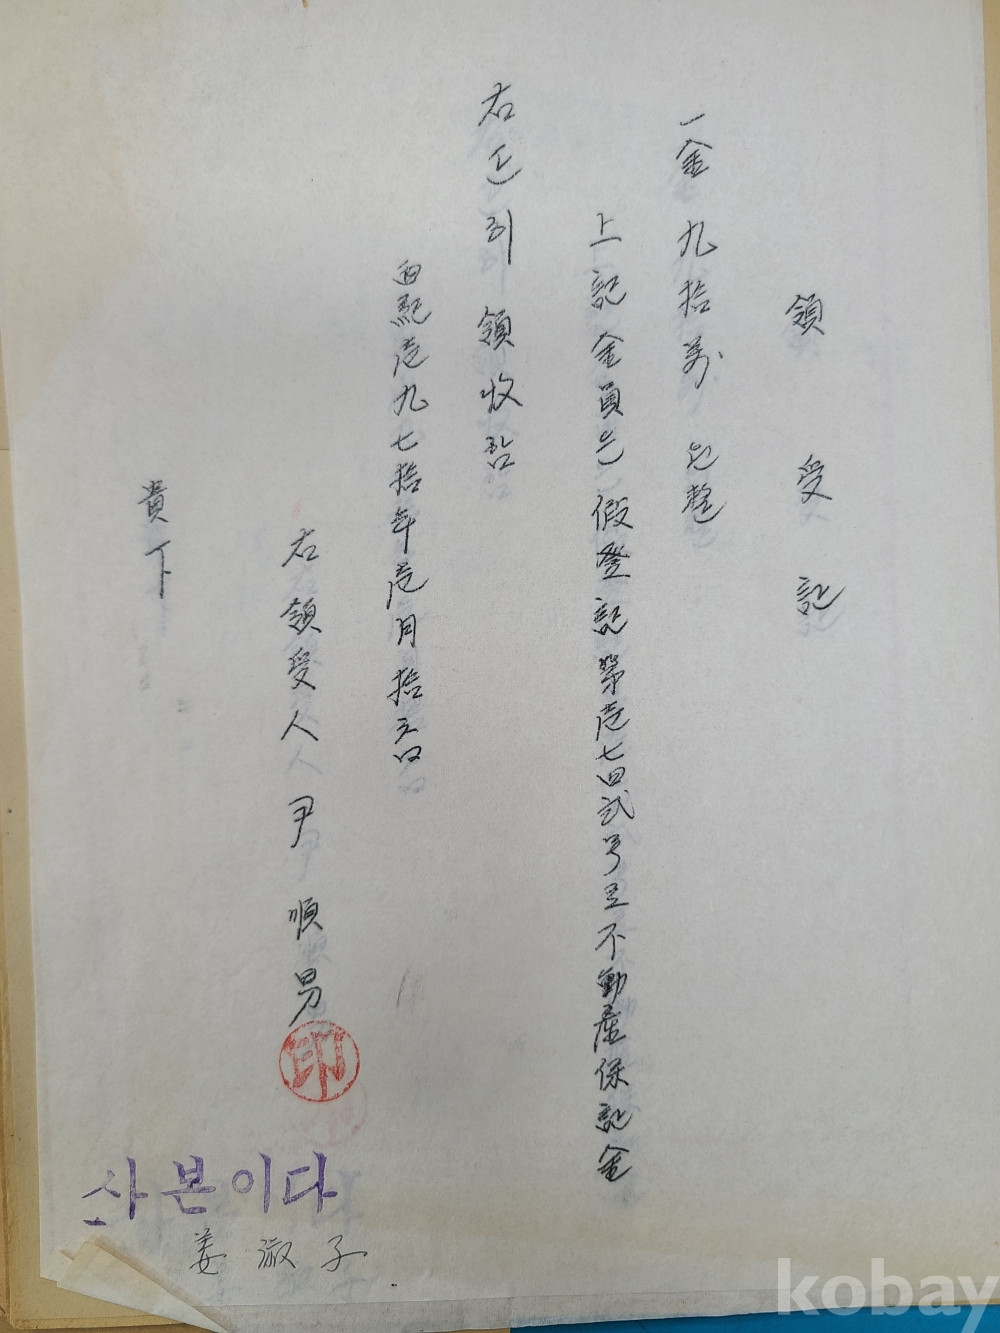 領受記
一金九拾萬원整
上記金員은假登記第壱七四弐号로不動産保記金
右 正히 領收함
西紀壱九七拾年壱月拾六日
右領受人 尹順男 印
貴下
사본이다
姜淑子
kobay